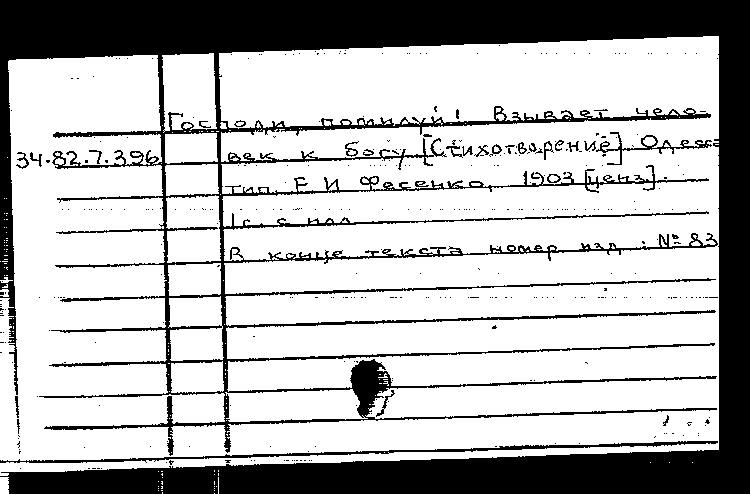 Господи, помилуй! Взывает чело-
34.82.7.396 век к богу [Стихотворение]. Одесса
тип. Е И Фесенко, 1903 [ценз].
1 с. с илл
В конце текста номер изд : № 83